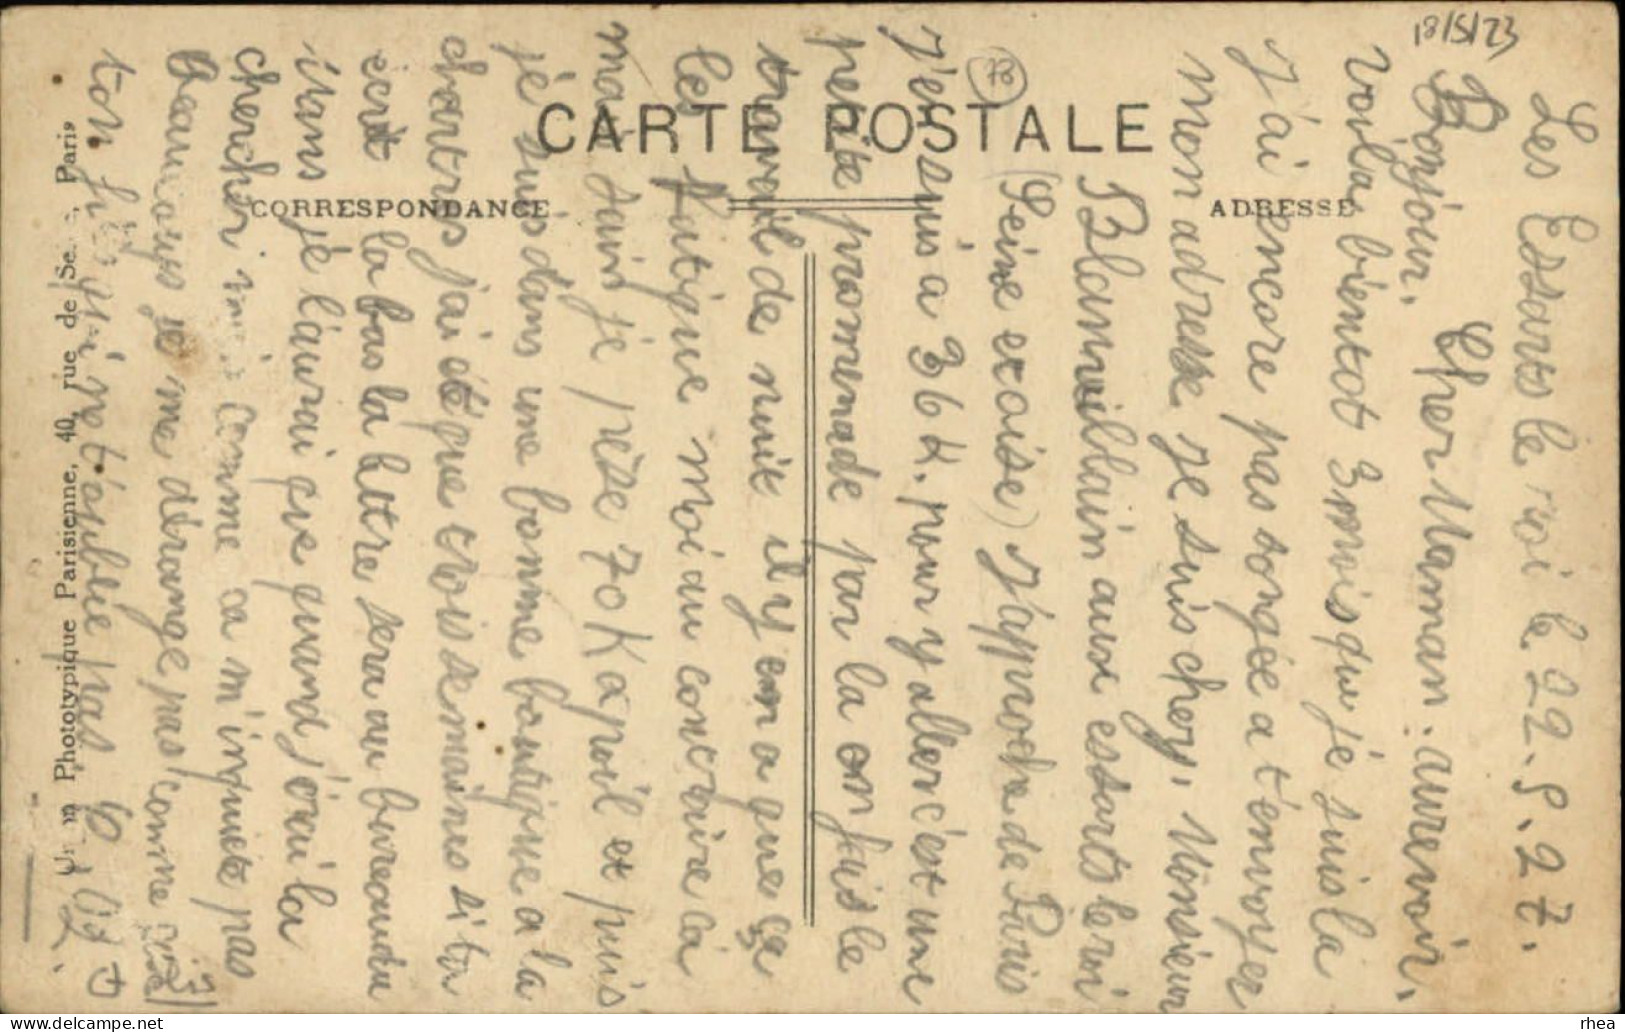 18/5/23
78
CARTE POSTALE
CORRESPONDANCE
ADRESSE
Phototypique Parisienne, 40, rue de Se. Paris
Les Essarts le roi le 22.5.27.
Cher Maman. aurevoir.
Bonjour.
voila bientot 3 mois que je suis la
J'ai encore pas songée a t'envoyer
mon adresse je suis chez, Monsieur
Blanvillain aux essarts le roi
(Seine et oise) J'approche de Paris
J'en suis à 36 K. pour y aller c'est une
petite promenade par la on fais le
travail de nuit il y en a que ça
les fatigue moi au contraire ça
mais suis je pèse 70 K à poil et puis
je suis dans une bonne boutique a la
chartres j'ai été que trois semaines si tu
ecrit la bas la lettre sera au bureau du
itans je l'aurai que quand j'irai la
chercher mais comme ca m'inquiete pas
beaucoups je me dérange pas comme
ton fils qui ne t'oublie pas